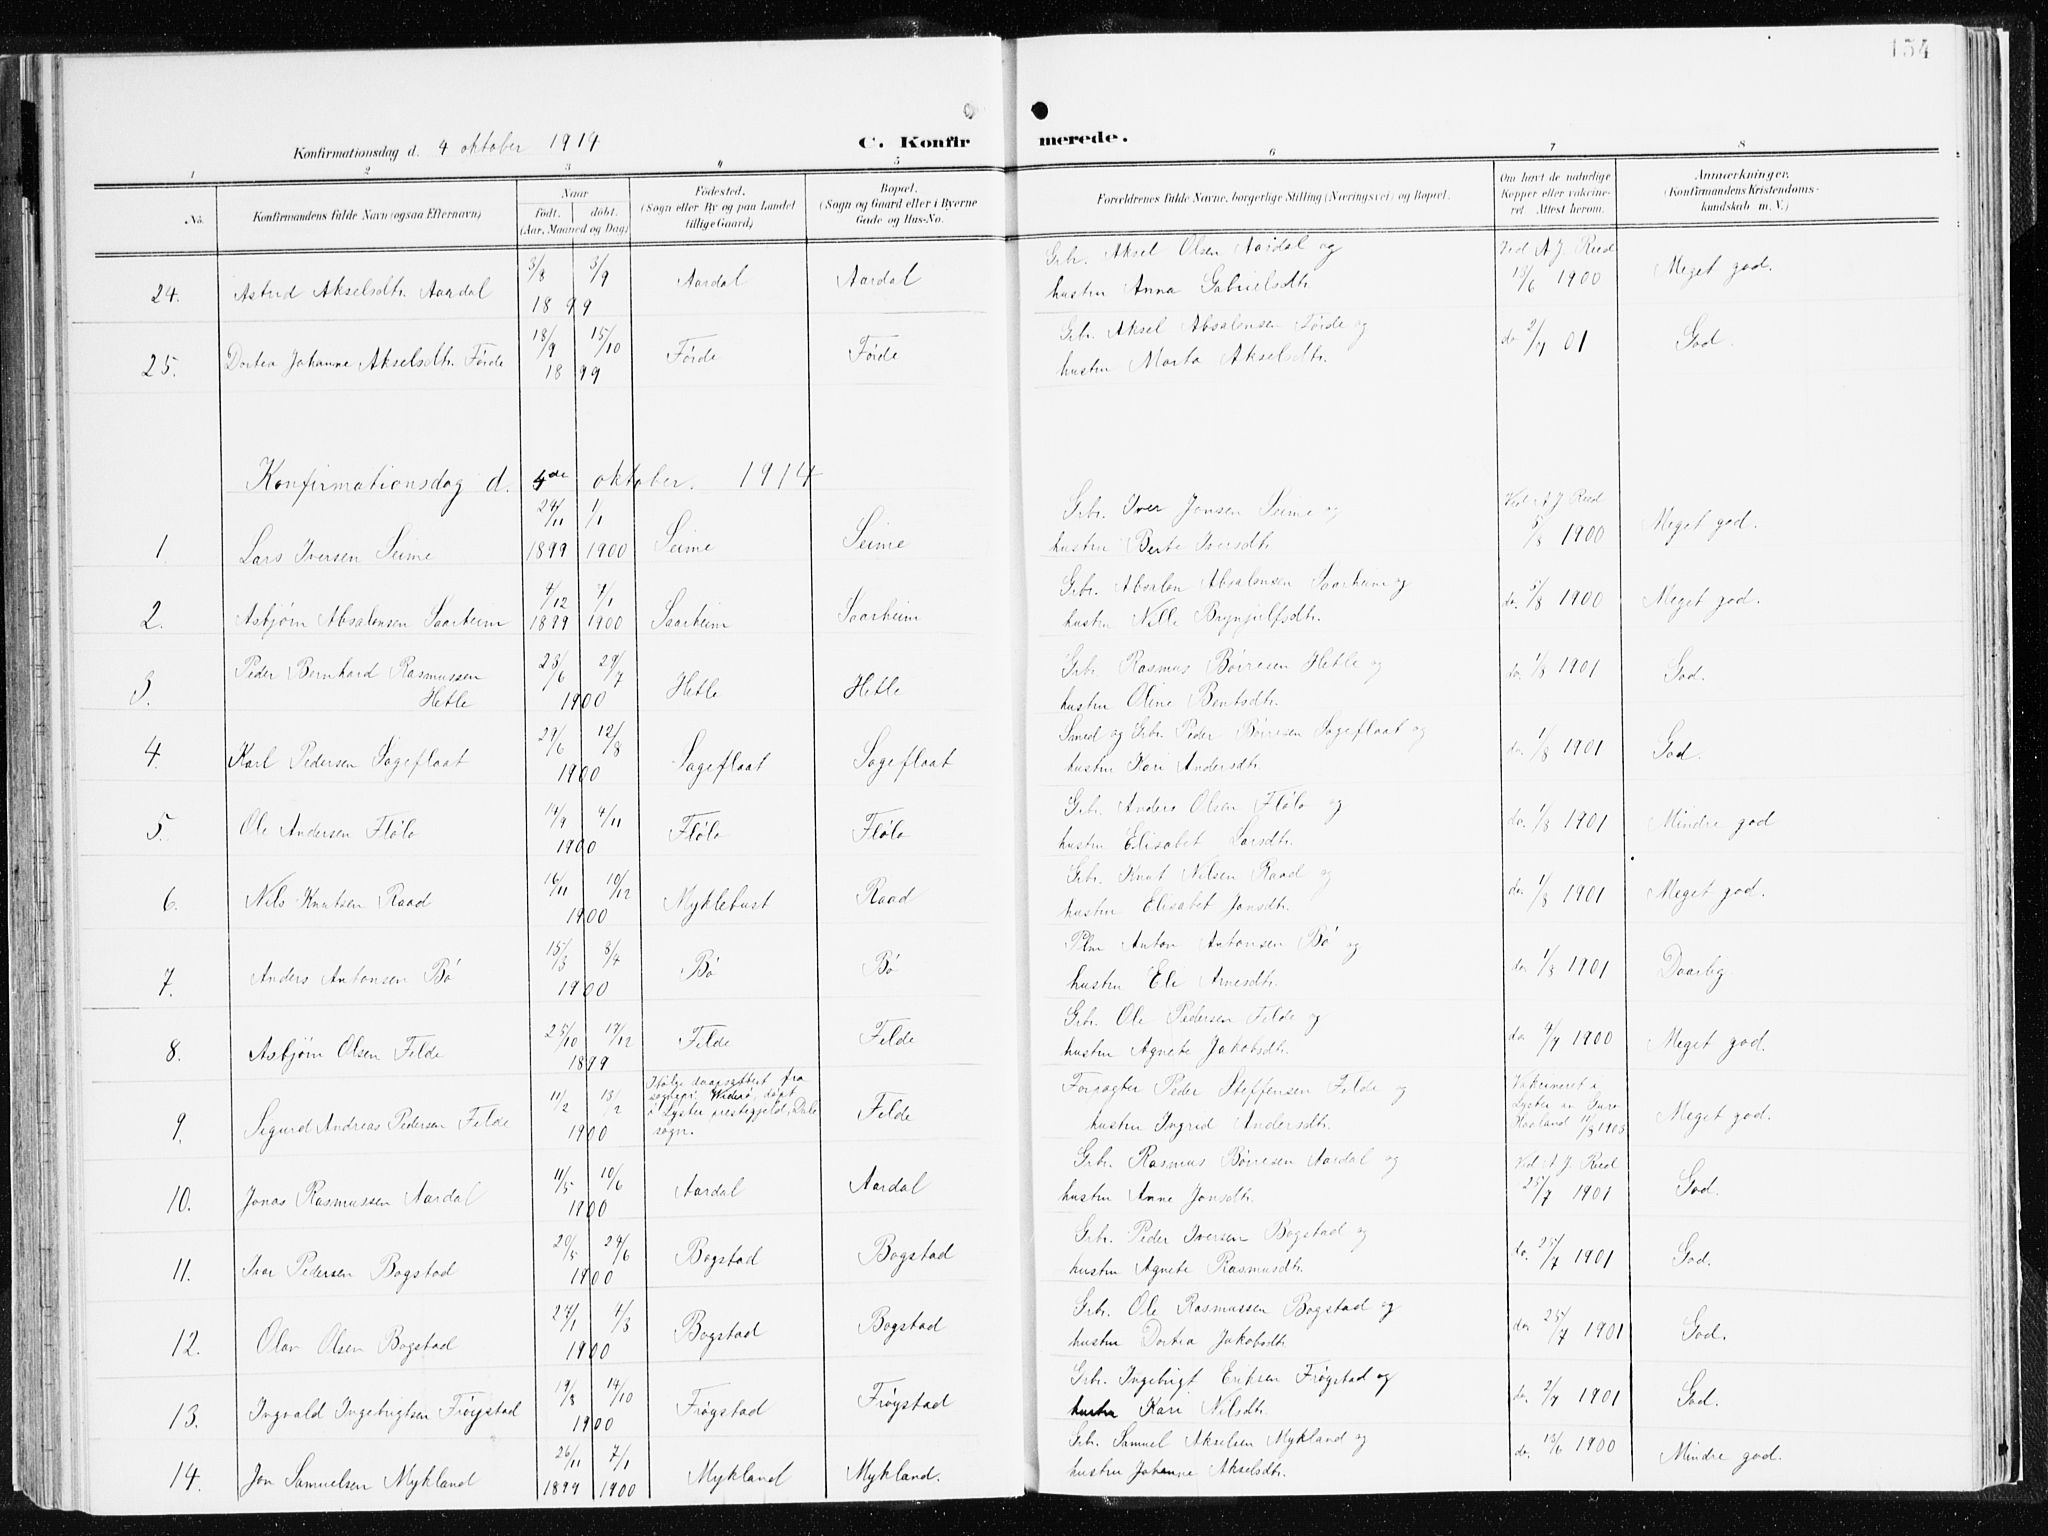 154
Konfirmationsdag d. 4 oktober 1914 C. Konfirmerede.
1 2 3 4 5 6 7 8
No. Konfirmandens fulde Navn (ogsaa Efternavn) Naar født. døbt. (Aar, Maaned og Dag) Fødested. (Sogn eller By og paa Landet tillige Gaard) Bopæl. (Sogn og Gaard eller i Byerne Gade og Hus-No. Forældrenes fulde Navne, borgerlige Stilling (Næringsvei) og Bopæl. Om havt de naturlige Kopper eller vakcineret. Attest herom. Anmærkninger. (Konfirmandens Kristendomskundskab m. V.)
24. Astrid Akselsdtr. Aardal 3/8 3/9 1899 Aardal Aardal Grbr. Aksel Olsen Aardal og
hustru Anna Gabrielsdtr. Ved A J Reed 13/6 1900 Meget god.
25. Dortea Johanne Akselsdtr. Førde 18/9 15/10 1899 Førde Førde Grbr. Aksel Absalonsen Førde og
hustru Marta Akselsdtr. do 2/7 01 God.
Konfirmationsdag d. 4de oktober. 1914
1 Lars Iversen Seime 24/11 1899 1/1 1900 Seime Seime Grbr. Iver Jonsen Seime og
hustru Berte Iversdtr. Ved A J Reed 5/8 1900 Meget god.
2. Asbjørn Absalonsen Saarheim 4/12 1899 7/1 1900 Saarheim Saarheim Grbr. Absalon Absalonsen Saarheim og
hustru Nille Brynjulfsdtr. do. 5/8 1900 Meget god.
3. Peder Bernhard Rasmussen Hetle 23/6 29/7 1900 Hetle Hetle Grbr. Rasmus Børresen Hetle og
hustru Oline Bentsdtr. do. 1/8 1901 God.
4. Karl Pedersen Sageflaat 29/6 12/8 1900 Sageflaat Sageflaat Smed og Grbr. Peder Børresen Sageflaat og
hustru Kari Andersdtr. do. 1/8 1901 God.
5. Ole Andersen Flølo 14/9 4/11 1900 Flølo Flølo Grbr. Anders Olsen Flølo og
hustru Elisabet Larsdtr. do. 1/8 1901 Mindre god
6. Nils Knutsen Raad 16/11 10/12 1900 Myklebust Raad Grbr. Knut Nilsen Raad og
hustru Elisabet Jonsdtr. do. 1/8 1901 Meget god.
7. Anders Antonsen Bø 15/3 8/4 1900 Bø Bø Plm Anton Antonsen Bø og
hustru Eli Arnesdtr. do. 1/8 1901 Daarlig.
8. Asbjørn Olsen Felde 25/10 17/12 1899 Felde Felde Grbr. Ole Pedersen Felde og
hustru Agnete Jakobsdtr. do. 4/7 1900 Meget god.
9. Sigurd Andreas Pedersen Felde 11/2 18/2 1900 Ifølge daapsattest fra sognepr. Widerø, døpt i Lyster prestegjeld, Dale sogn. Felde Forpagter Peder Steffensen Felde og
hustru Ingrid Andersdtr. Vakcineret i Lyster av Haaland 11/8 1905 Meget god.
10. Jonas Rasmussen Aardal 11/5 10/6 1900 Aardal Aardal Grbr. Rasmus Børresen Aardal og
hustru Anne Jonsdtr. Ved A. J. Reed 25/7 1901 God.
11. Ivar Pedersen Bogstad 20/5 24/6 1900 Bogstad Bogstad Grbr. Peder Iversen Bogstad og
hustru Agnete Rasmusdtr. do. 25/7 1901 God.
12. Olav Olsen Bogstad 27/1 4/3 1900 Bogstad Bogstad Grbr. Ole Rasmussen Bogstad og
hustru Dortea Jakobsdtr. do 25/7 1901 God.
13. Ingvald Ingebrigtsen Frøystad 19/8 14/10 1900 Frøystad Frøystad Grbr. Ingebrigt Eriksen Frøystad og
hustru Kari Nilsdtr. do 2/7 1901 God.
14. Jon Samuelsen Mykland 26/11 1899 7/1 1900 Mykland Mykland. Grbr. Samuel Akselsen Mykland og
hustru Johanne Akselsdtr. do. 13/6 1900 Mindre god.